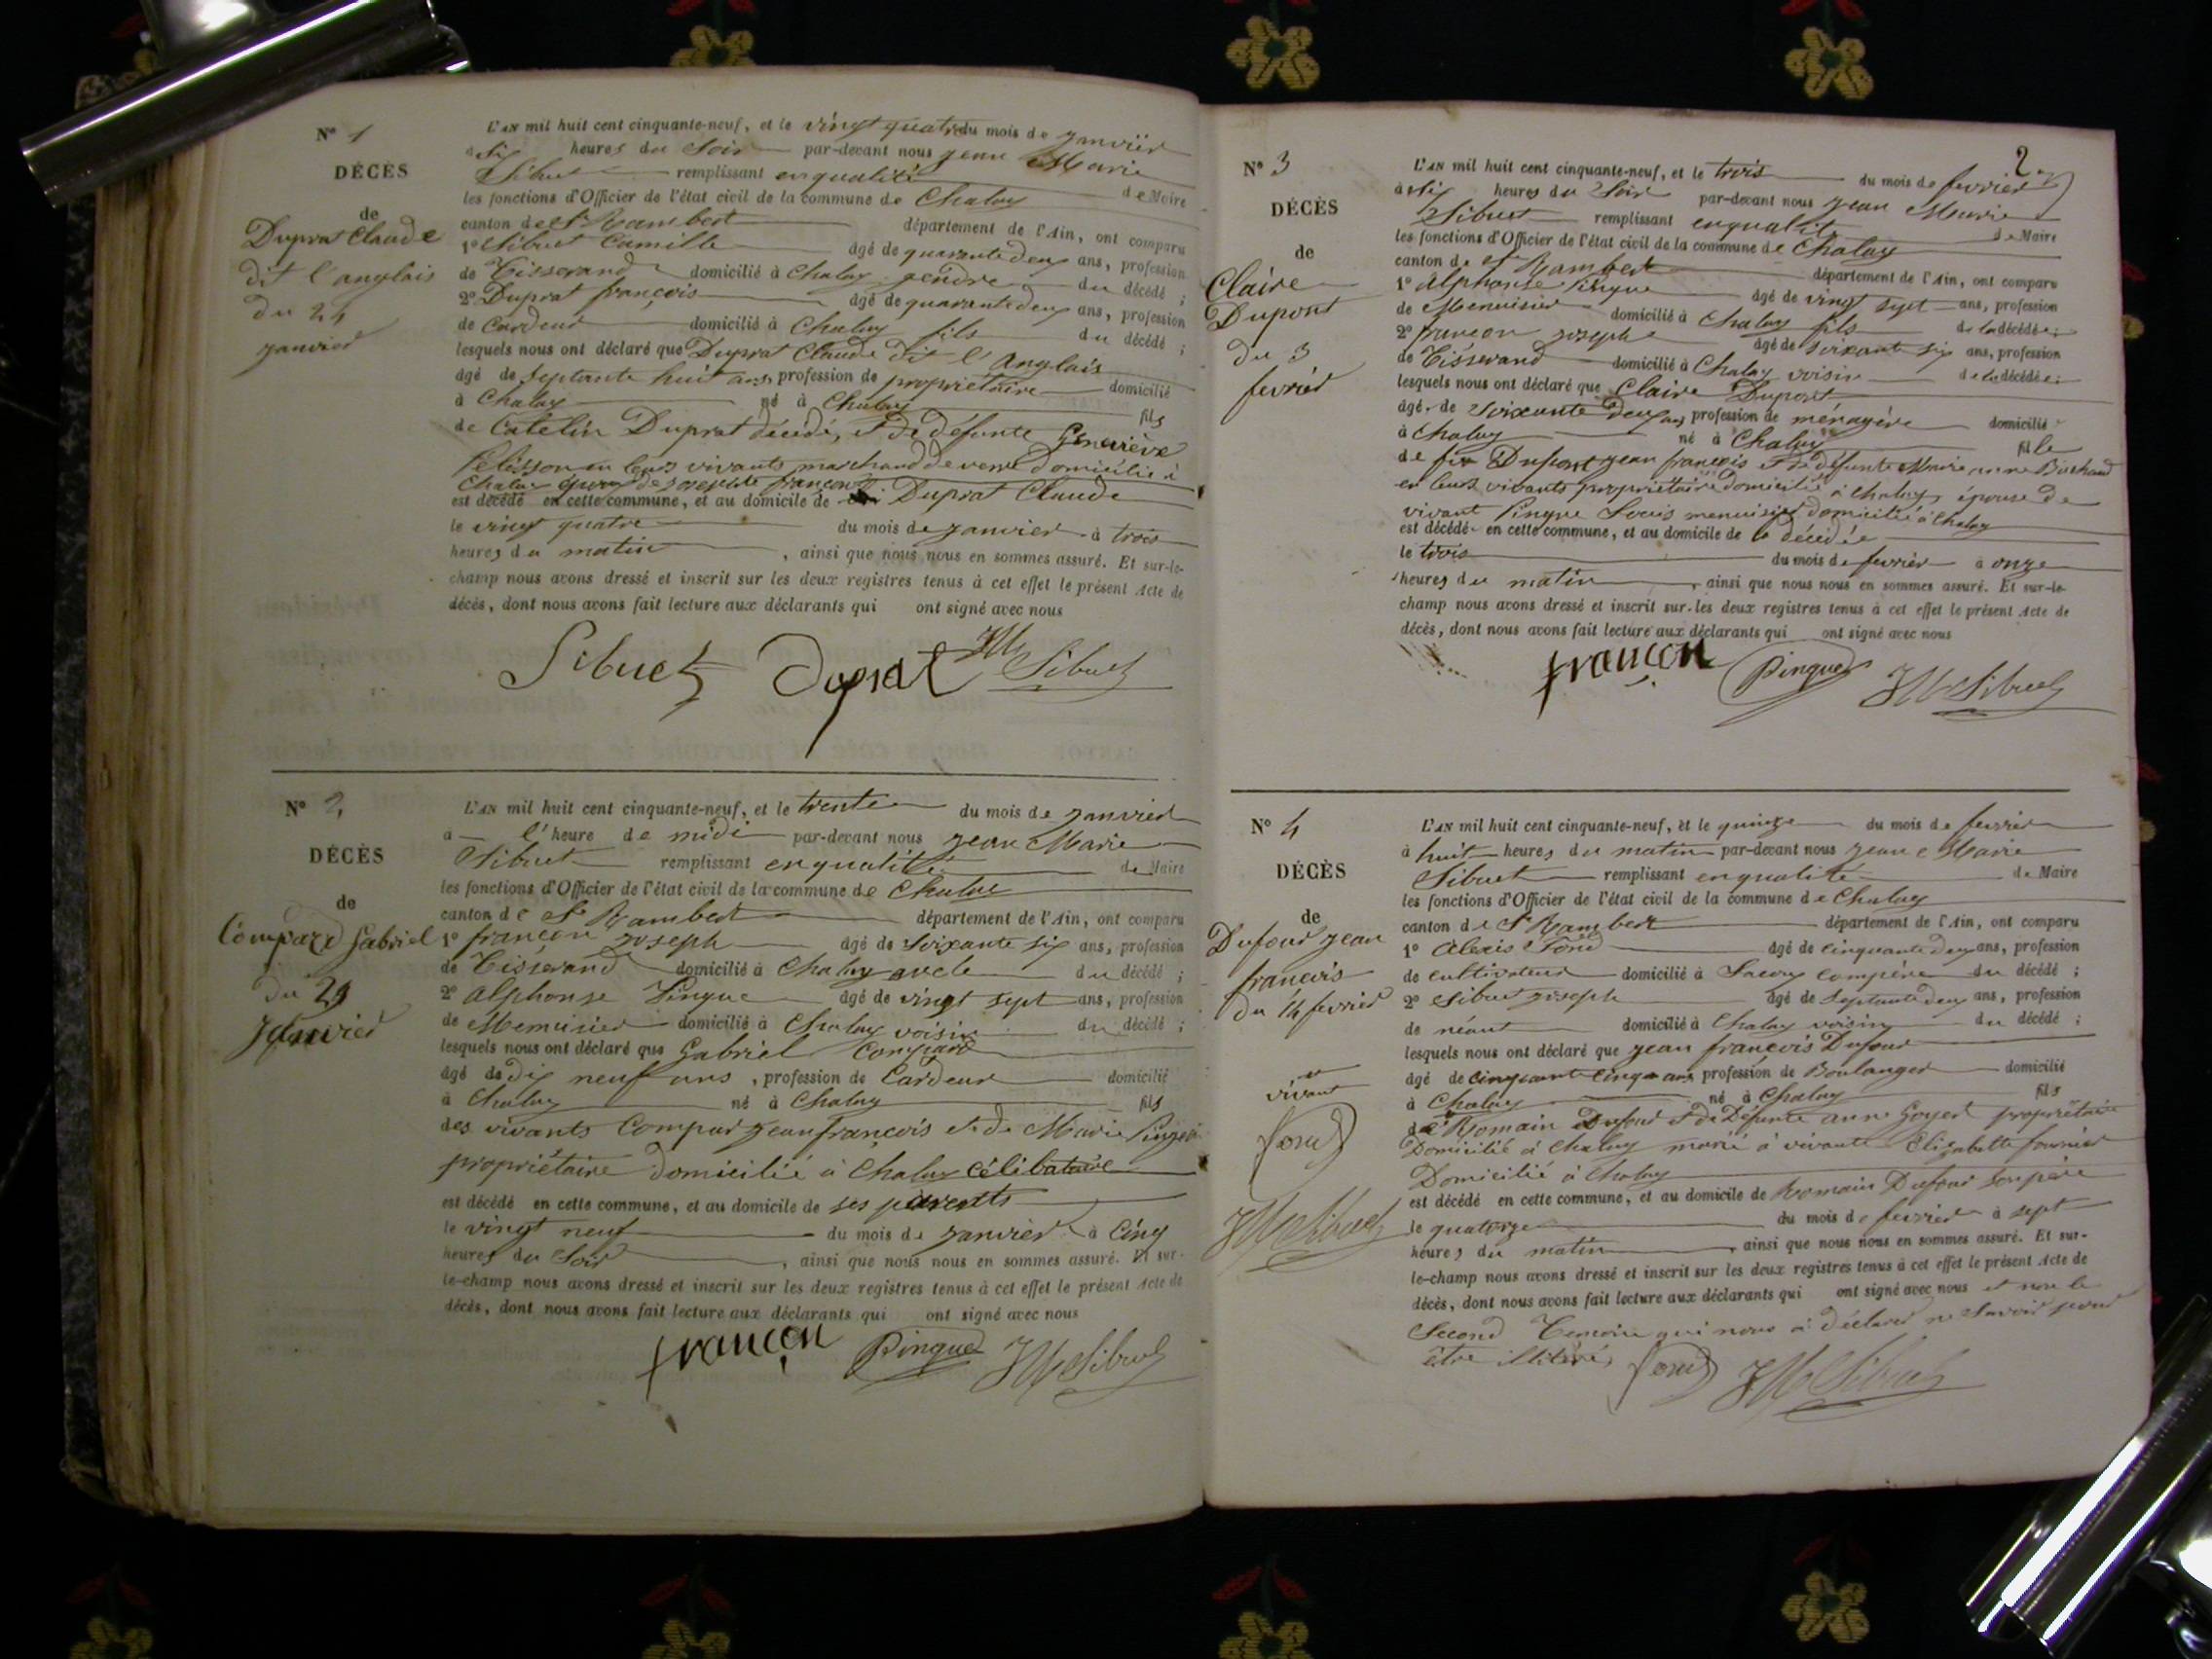 N° 1
DÉCÈS
de
Duprat Claude
dit l'anglais
du 24
janvier
L'AN mil huit cent cinquante-neuf, et le vingt quatre du mois de janvier
à six heures du soir par-devant nous jean Marie
Sibuet remplissant en qualité de Maire
les fonctions d'Officier de l'état civil de la commune de Chaley
canton de St Rambert département de l'Ain, ont comparu
1° Sibuet Camille âgé de quarante deux ans, profession
de Tisserand domicilié à Chaley gendre du décédé ;
2° Duprat françois âgé de quarante deux ans, profession
de Cardeur domicilié à Chaley fils du décédé ;
lesquels nous ont déclaré que Duprat Claude dit l'Anglais
âgé de septante huit ans, profession de propriétaire domicilié
à Chaley né à Chaley fils
de Catelin Duprat décédé, et de défunte Geneviève
Pelisson en leurs vivants marchand de verre domicilié à
Chaley époux de josephte françon
est décédé en cette commune, et au domicile de Duprat Claude
le vingt quatre du mois de janvier à trois
heures du matin, ainsi que nous nous en sommes assuré. Et sur-le-
champ nous avons dressé et inscrit sur les deux registres tenus à cet effet le présent Acte de
décès, dont nous avons fait lecture aux déclarants qui ont signé avec nous
Sibuet Duprat JM Sibuet
N° 2
DÉCÈS
de
Compard Gabriel
du 29
janvier
L'AN mil huit cent cinquante-neuf, et le trente du mois de janvier
à l'heure de midi par-devant nous jean Marie
Sibuet remplissant en qualité de Maire
les fonctions d'Officier de l'état civil de la commune de Chaley
canton de St Rambert département de l'Ain, ont comparu
1° françon joseph âgé de soixante six ans, profession
de Tisserand domicilié à Chaley oncle du décédé ;
2° Alphonse Pingue âgé de vingt sept ans, profession
de Menuisier domicilié à Chaley voisin du décédé ;
lesquels nous ont déclaré que Gabriel Compard
âgé de dix neuf ans, profession de Cardeur domicilié
à Chaley né à Chaley fils
des vivants Compard jean françois et de Marie
propriétaire domicilié à Chaley célibataire
est décédé en cette commune, et au domicile de ses parents
le vingt neuf du mois de janvier à cinq
heures du soir, ainsi que nous nous en sommes assuré. Et sur-
le-champ nous avons dressé et inscrit sur les deux registres tenus à cet effet le présent Acte de
décès, dont nous avons fait lecture aux déclarants qui ont signé avec nous
françon Pingue JM Sibuet
2
N° 3
DÉCÈS
de
Claire
Dupont
du 3
fevrier
L'AN mil huit cent cinquante-neuf, et le trois du mois de fevrier
à six heures du soir par-devant nous jean Marie
Sibuet remplissant en qualité de Maire
les fonctions d'Officier de l'état civil de la commune de Chaley
canton de St Rambert département de l'Ain, ont comparu
1° Alphonse Pingue âgé de vingt sept ans, profession
de Menuisier domicilié à Chaley fils de la décédée ;
2° françon joseph âgé de soixante six ans, profession
de Tisserand domicilié à Chaley voisin de la décédée ;
lesquels nous ont déclaré que Claire Dupont
âgé de soixante deux ans, profession de ménagère domicilié
à Chaley né à Chaley fille
de feu Dupont jean françois et de défunte Marie anne
en leurs vivants propriétaire domicilié à Chaley, épouse de
vivant Pingue Louis menuisier domicilié à Chaley
est décédé en cette commune, et au domicile de la décédée
le trois du mois de fevrier à onze
heures du matin, ainsi que nous nous en sommes assuré. Et sur-le-
champ nous avons dressé et inscrit sur les deux registres tenus à cet effet le présent Acte de
décès, dont nous avons fait lecture aux déclarants qui ont signé avec nous
françon Pingue JM Sibuet
N° 4
DÉCÈS
de
Dufour jean
françois
du 14 fevrier
vivant
JM Sibuet
L'AN mil huit cent cinquante-neuf, et le quinze du mois de fevrier
à huit heures du matin par-devant nous jean Marie
Sibuet remplissant en qualité de Maire
les fonctions d'Officier de l'état civil de la commune de Chaley
canton de St Rambert département de l'Ain, ont comparu
1° Alexis âgé de cinquante deux ans, profession
de cultivateur domicilié à compère du décédé ;
2° Sibuet joseph âgé de septante deux ans, profession
de néant domicilié à Chaley voisin du décédé ;
lesquels nous ont déclaré que jean françois Dufour
âgé de cinquante cinq ans profession de Boulanger domicilié
à Chaley né à Chaley fils
de Romain Dufour et de Défunte anne Goyet propriétaire
Domicilié à Chaley marié à vivante Elizabette fournier
Domicilié à Chaley
est décédé en cette commune, et au domicile de Romain Dufour son père
le quatorze du mois de fevrier à sept
heures du matin, ainsi que nous nous en sommes assuré. Et sur-
le-champ nous avons dressé et inscrit sur les deux registres tenus à cet effet le présent Acte de
décès, dont nous avons fait lecture aux déclarants qui ont signé avec nous et non le
Second Temoin qui nous a déclaré ne savoir pour
être illitéré, JM Sibuet